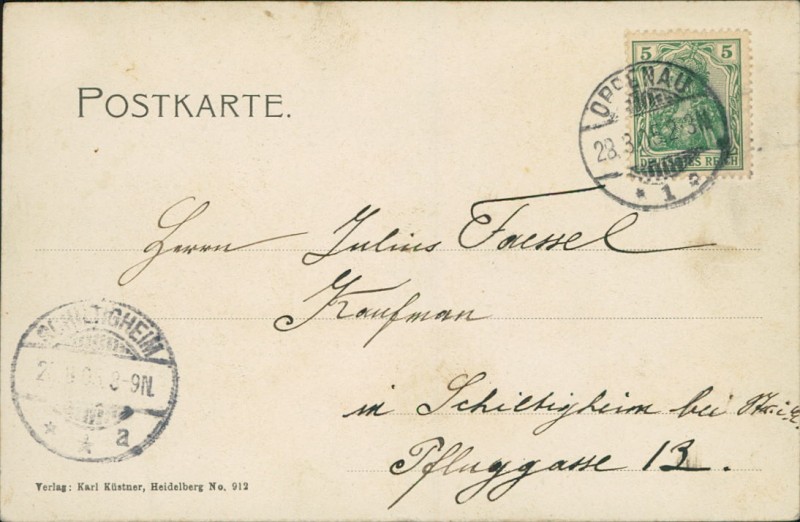 POSTKARTE.
5 5
DEUTSCHES REICH
OPPENAU
28.3. 2-3N
* 1 a
Herrn Julius Faessel
Kaufman
in Schiltigheim bei
Pfluggasse 13.
SCHILTIGHEIM
8-9N.
* * a
Verlag: Karl Küstner, Heidelberg No. 912